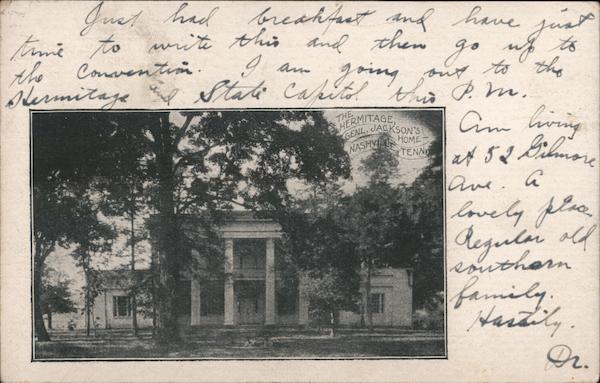 Just had breakfast and have just
time to write this and then go up to
the convention. I am going out to the
Hermitage and State Capitol this P.M.
THE
HERMITAGE,
GENL. JACKSON'S
HOME
NASHVILLE
TENN.
Am living
at 52 Gilmore
Ave. A
lovely place
Regular old
southern
family.
Hastily.
Dr.